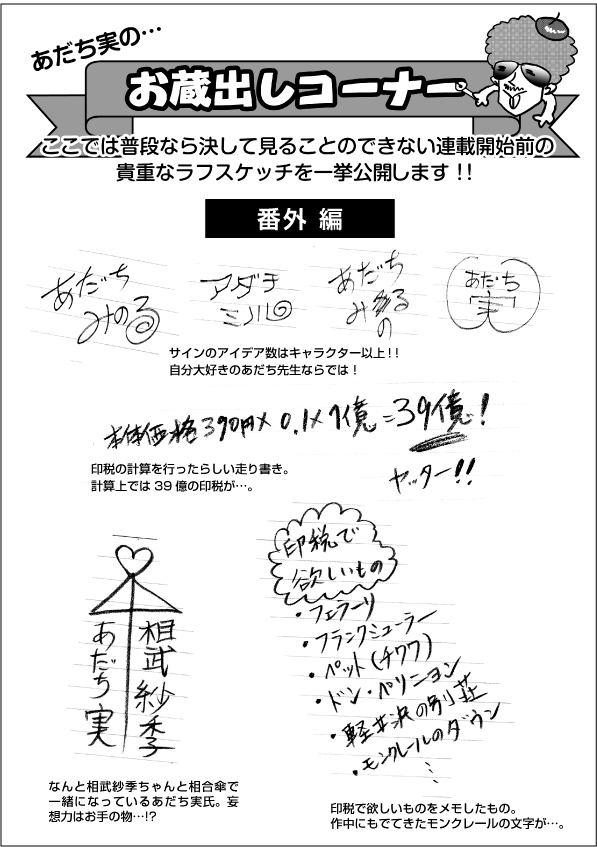 あだち実の…
お蔵出しコーナー
ここでは普段なら決して見ることのできない連載開始前の
貴重なラフスケッチを一挙公開します!!
番外 編
あだち
みのる
アダチ
ミノル
あだち
みのる
の
あだち
実
サインのアイデア数はキャラクター以上!!
自分大好きのあだち先生ならでは!
本体価格390円×0.1×1億=39億!
ヤッター!!
印税の計算を行ったらしい走り書き。
計算上では39億の印税が…。
相武紗季
あだち実
なんと相武紗季ちゃんと相合傘で
一緒になっているあだち実氏。妄
想力はお手の物…!?
印税で
欲しいもの
・フェラーリ
・フランクミューラー
・ペット(チワワ)
・ドン・ペリニヨン
・軽井沢の別荘
・モンクレールのダウン
⋮
印税で欲しいものをメモしたもの。
作中にもでてきたモンクレールの文字が…。